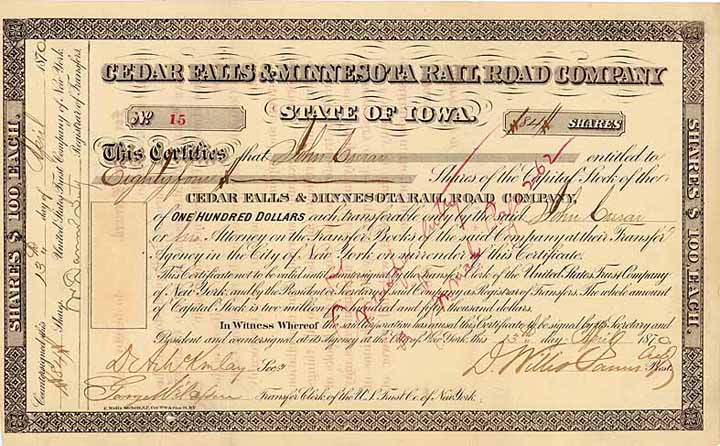 CEDAR FALLS & MINNESOTA RAIL ROAD COMPANY
STATE OF IOWA.
No 15
84 SHARES
This Certifies that John Curan entitled to
Eighty four Shares of the Capital Stock of the
CEDAR FALLS & MINNESOTA RAIL ROAD COMPANY,
of ONE HUNDRED DOLLARS each, transferable only by the said John Curan
or his Attorney on the Transfer Books of the said Company at their Transfer
Agency in the City of New York on surrender of this Certificate.
This Certificate not to be valid until countersigned by the Transfer Clerk of the United States Trust Company
of New York, and by the President or Secretary of said Company as Registrar of Transfers. The whole amount
of Capital Stock is two million hundred and fifty thousand dollars.
In Witness Whereof the said Corporation has caused this Certificate to be signed by its Secretary and
President and countersigned at its Agency at the City of New York this 13th day April 1870
Secy
D. Willis James
Prest.
George
Transfer Clerk of the U.S. Trust Co. of New York.
SHARES $ 100 EACH.
SHARES $ 100 EACH.
Countersigned this 13th day of April 1870
84 Shares
United States Trust Company of New York.
Registrar of Transfers.